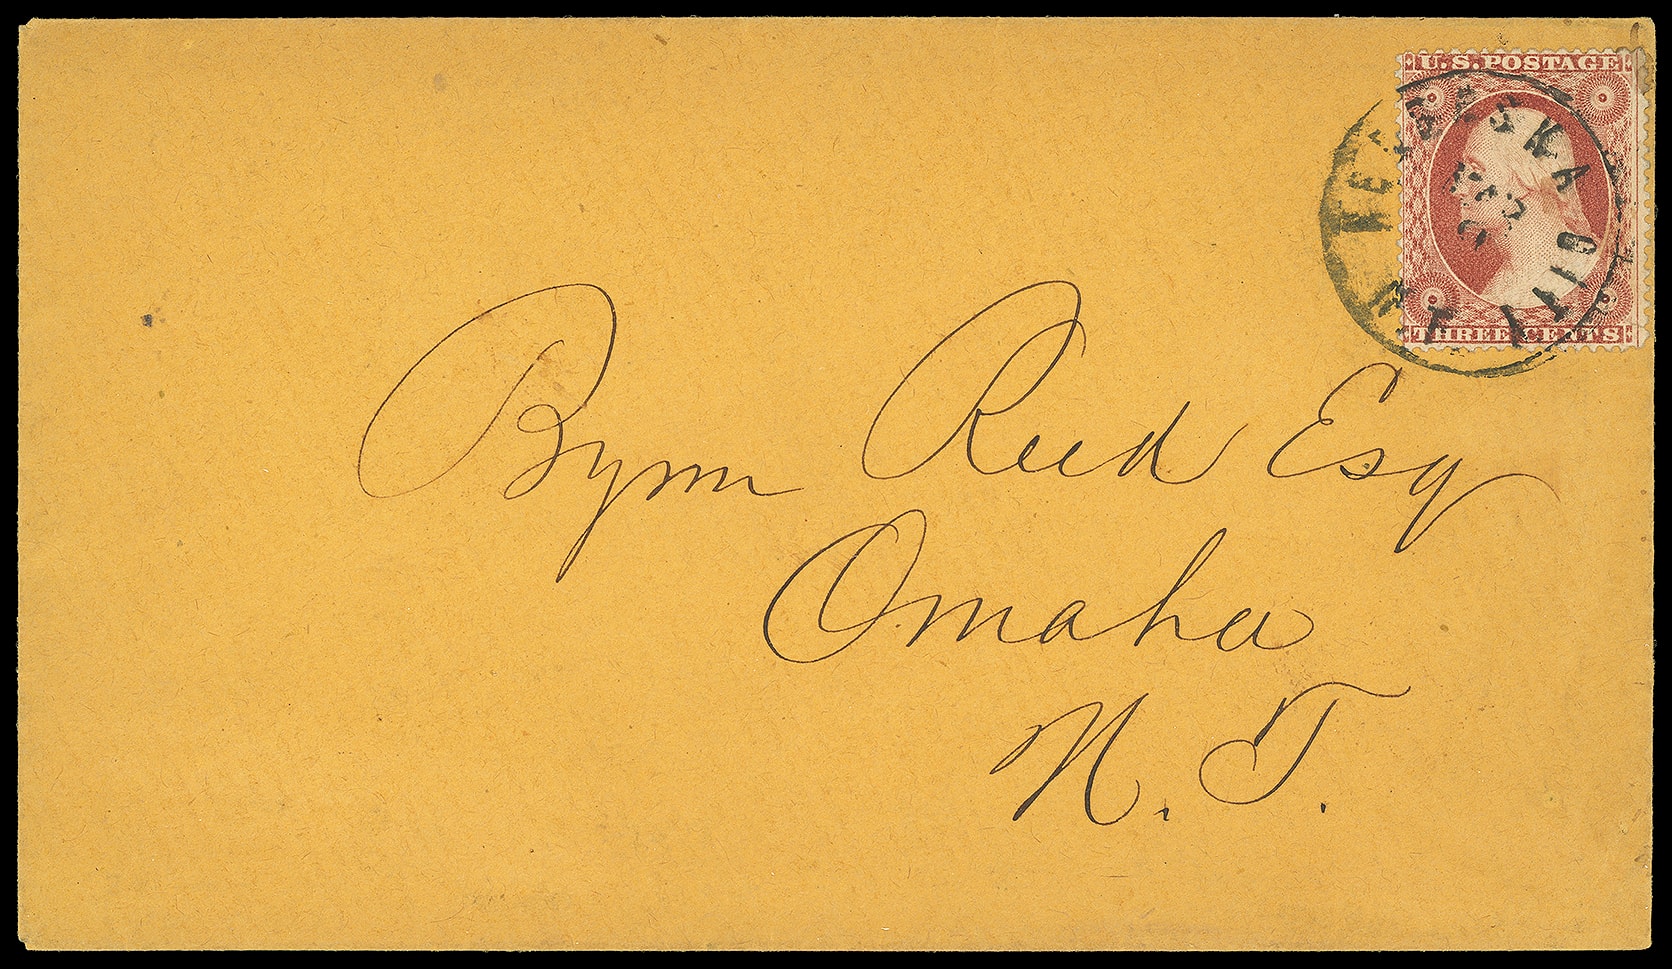 U.S. POSTAGE
THREE CENTS
NEBRASKA CITY
N.T.
Byron Reed Esq
Omaha
N. T.